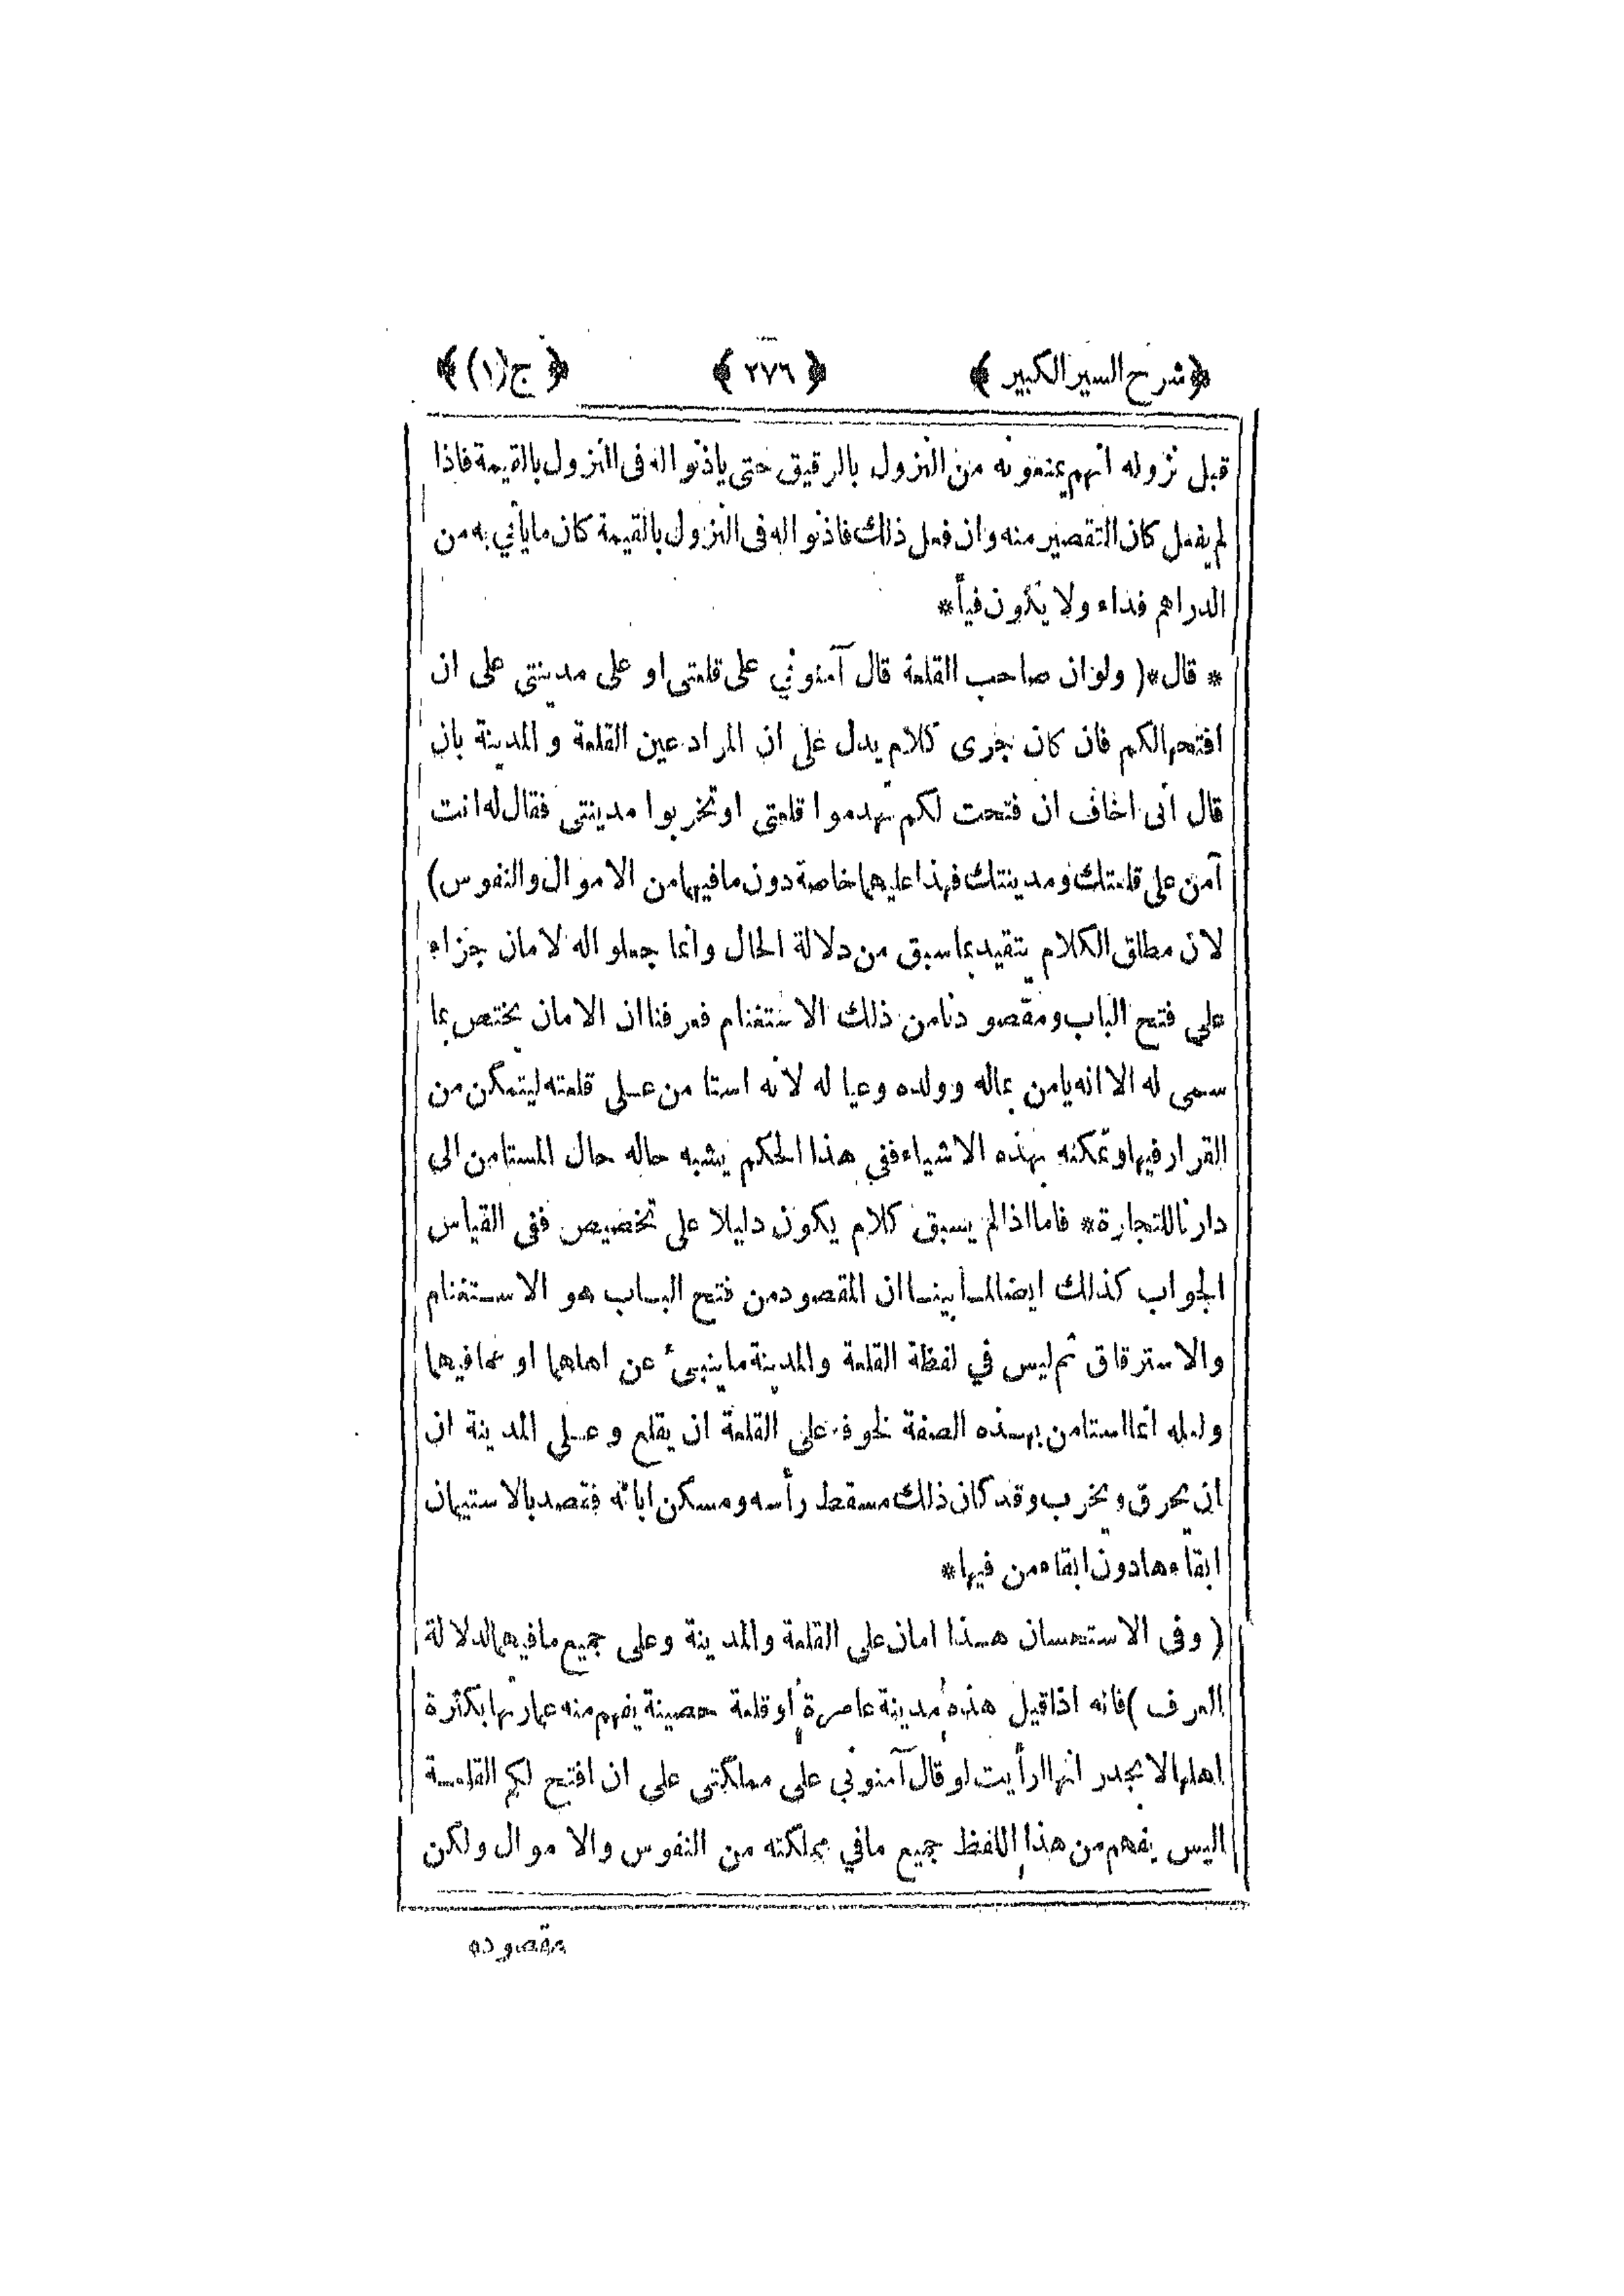 ﴿شرح السير الكبير﴾ ﴿٢٧٦﴾ ﴿ج(١)﴾
قبل نزوله انهم يمنعونه من النزول بالرقيق حتى ياذنوا له فى النزول بالقيمة فاذا
لم يفعل كان التقصير منه وان فعل ذلك فاذنوا له فى النزول بالقيمة كان ما يأتي به من
الدراهم فداء ولا يكون فيأ*
* قال*( ولو ان صاحب القلعة قال آمنوني على قلعتى او على مدينتى على ان
افتحها لكم فان كان جرى كلام يدل على ان المراد عين القلعة و المدينة بان
قال انى اخاف ان فتحت لكم تهدموا قلعتى او تخربوا مدينتى فقال له انت
آمن على قلعتك ومدينتك فهذا عليهما خاصة دون ما فيهما من الاموال والنفوس)
لان مطلق الكلام يتقيد بما سبق من دلالة الحال وانما جعلوا له لامان جزاء
على فتح الباب ومقصودنا من ذلك الاستغنام فعرفنا ان الامان يختص بما
سمى له الا انه يامن بماله وولده وعياله لانه استامن على قلعته ليتمكن من
القرار فيها وتمكنه بهذه الاشياء ففي هذا الحكم يشبه حاله حال المستامن الى
دارنا للتجارة* فاما اذا لم يسبق كلام يكون دليلا على تخصيص ففى القياس
الجواب كذلك ايضا لما بينا ان المقصود من فتح الباب هو الاستغنام
والاسترقاق ثم ليس في لفظة القلعة والمدينة ما ينبئ عن اهلهما او عما فيهما
ولعله انما استامن بهذه الصفة لخوف على القلعة ان يقلع وعلى المدينة ان
ان يحرق ويخرب وقد كان ذلك مسقط رأسه ومسكن ابائه فقصد بالاستيمان
ابقاءها دون ابقاء من فيها*
( وفى الاستحسان هذا امان على القلعة والمدينة وعلى جميع ما فيهما لدلالة
العرف )فانه اذا قيل هذه مدينة عامرة أو قلعة حصينة يفهم منه عمارتها بكثرة
اهلها لا بجدرانها ارأيت لو قال آمنوني على مملكتى على ان افتح لكم القلعة
اليس يفهم من هذا اللفظ جميع مافي مملكته من النفوس والاموال ولكن
مقصوده